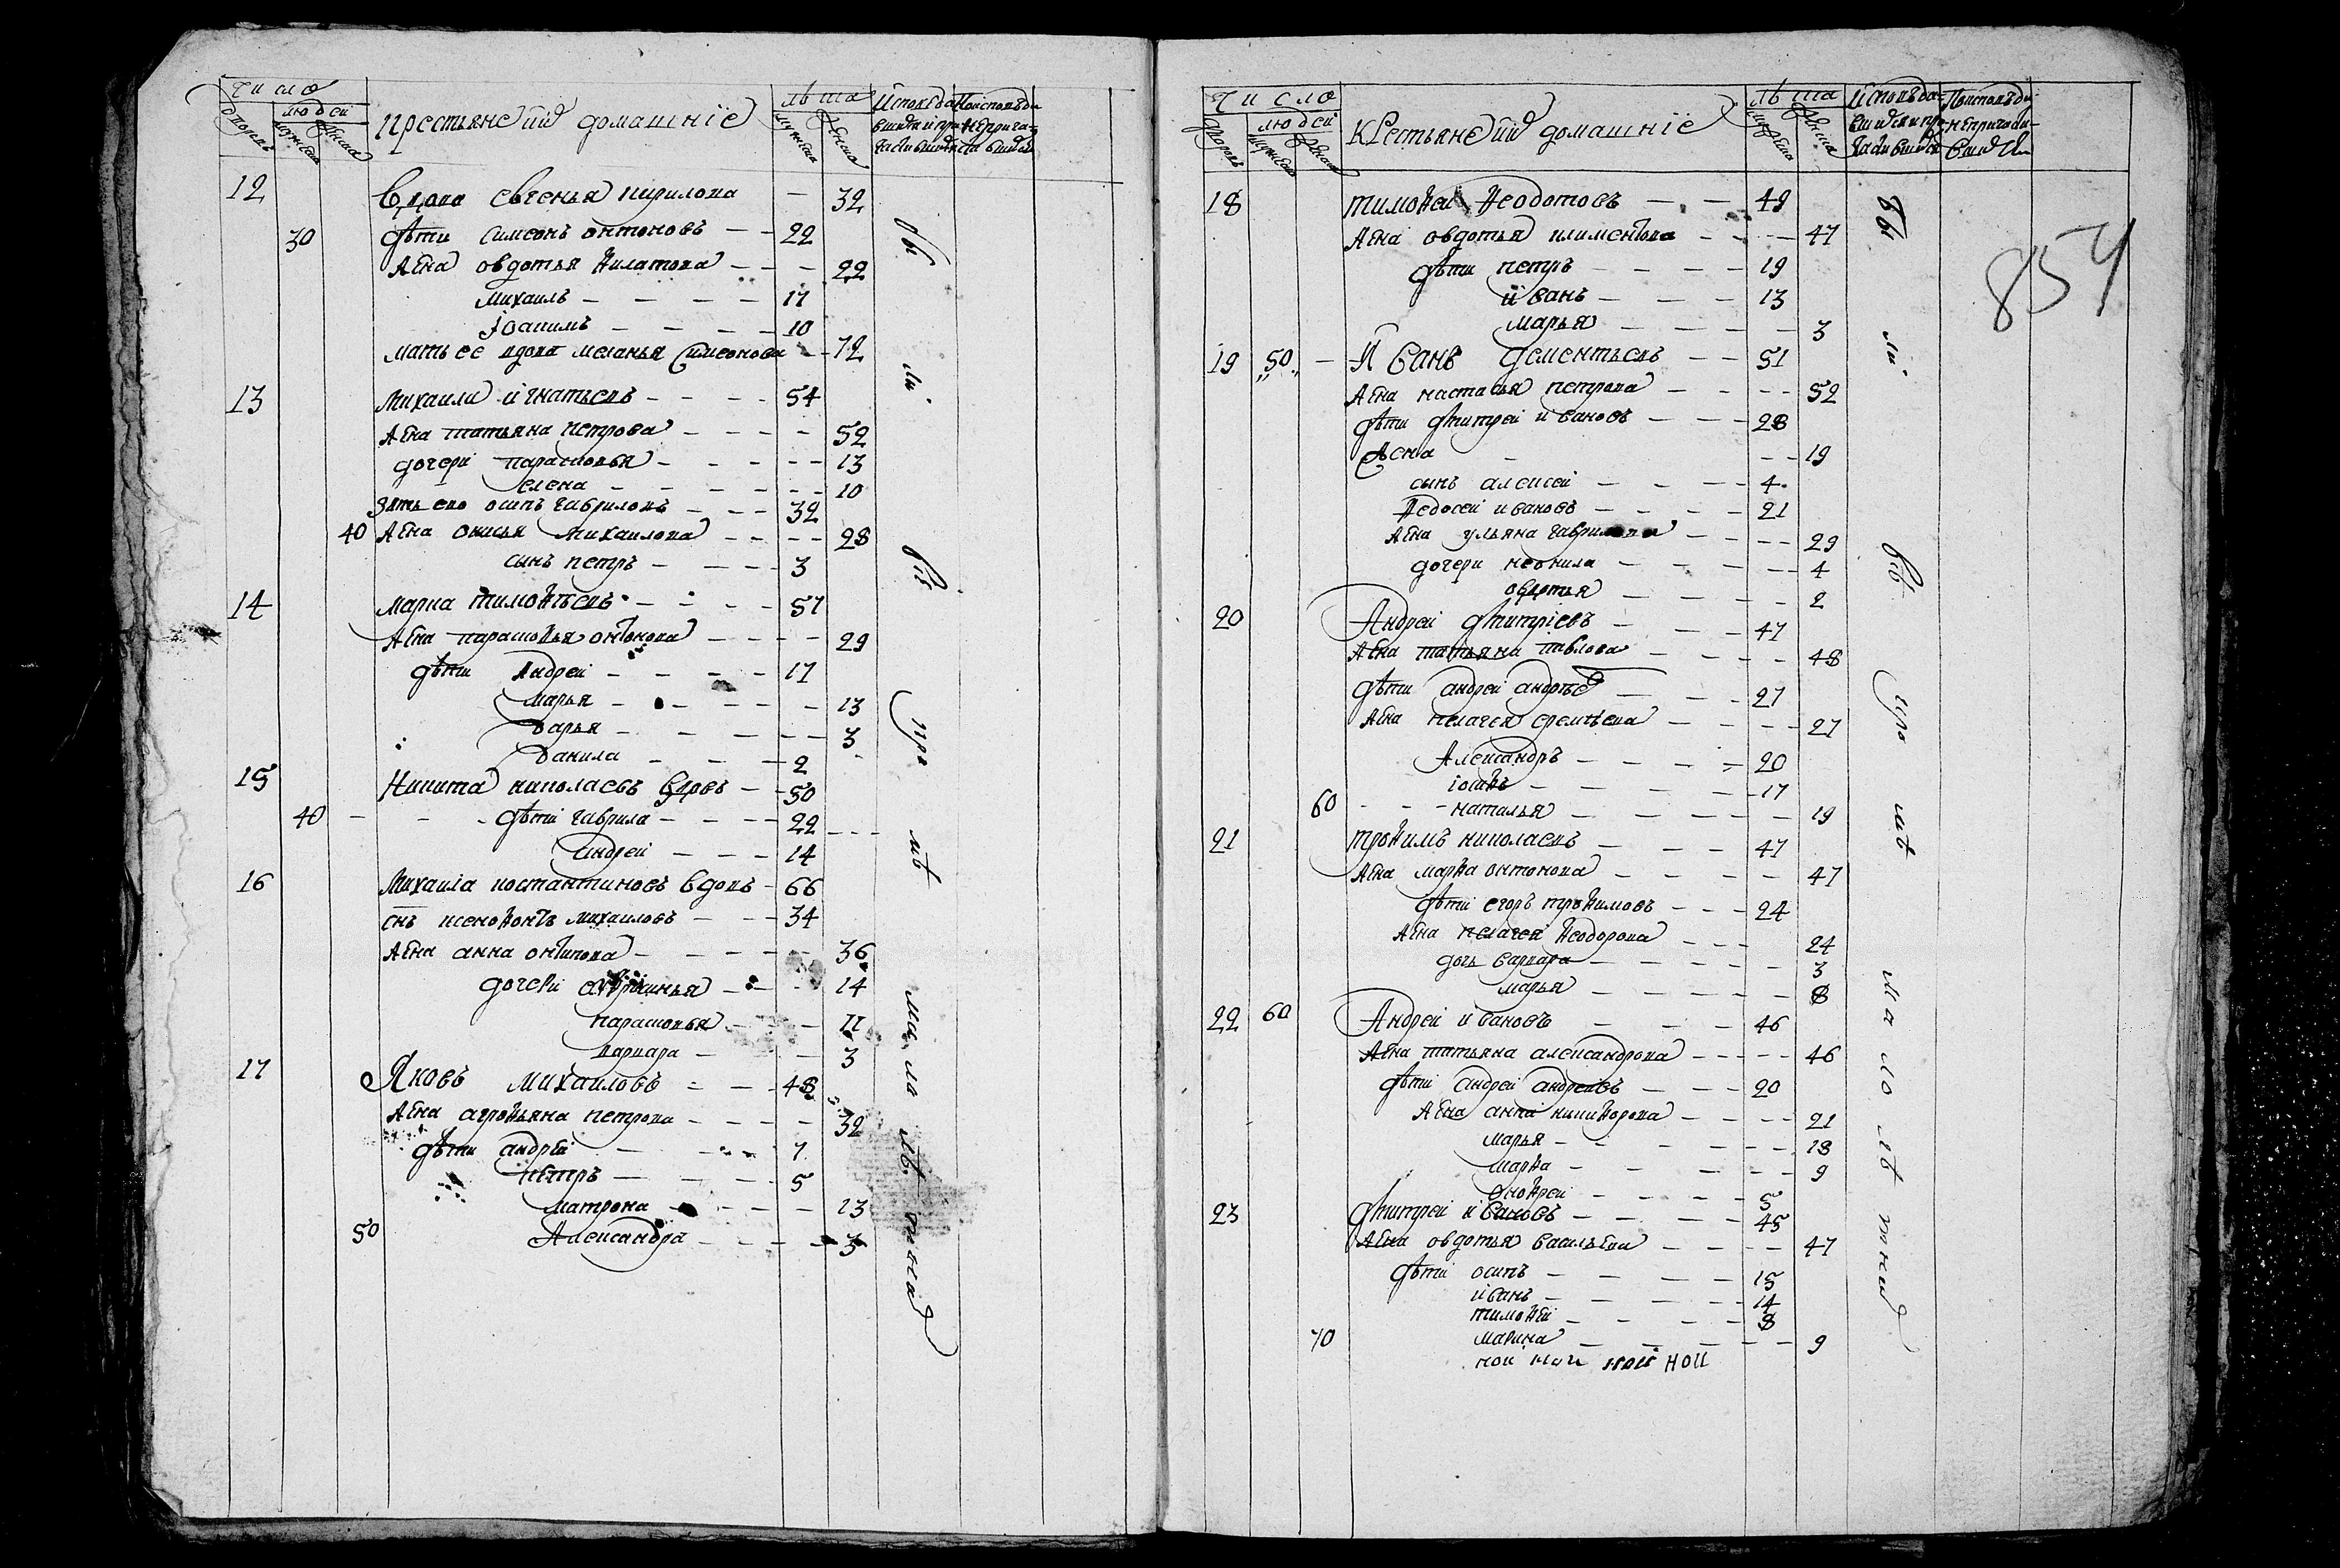 число
дворовъ людей
мужеска женска
крестьяне и ихъ домашнiе
лѣта
мужеска женска
12 Вдова евгенья кирилова — 32
30 дѣти симеонъ онтоновъ — — 22
жена овдотья филатова — — — 22
михаилъ — — — — 17
Iоакимъ — — — — 10
мать ее вдова меланья симеонова — — 72
13 михаила игнатьевъ — — — — 54
жена татьяна петрова — — — — — 52
дочери парасковья — — — — — 13
елена — — — — — — 10
зять ево осипъ гавриловъ — — — 32
40 жена михаилова — — — — — 28
сынъ петръ — — — — 3
14 марка тимофѣевъ — — — — 57
жена парасковья онтонова — — — — 29
дѣти Андрей — — — — 17
марья — — — — — — 13
дарья — — — — — — 3
данила — — — — 2
15 Никита николаевъ вдовъ — — 50
40 — — — дѣти гаврила — — — — 22
андрей — — — 14
16 Михаила костантиновъ вдовъ — 66
снъ ксенофонтъ михаиловъ — — — 34
жена анна онтипова — — — — — 36
дочери 14
парасковья — — — 11
варвара — — — 3
17 Яковъ михаиловъ — — — 48
жена агрофьяна петрова — — — — 32
дѣти андрей — — — 7
петръ — — — — 5
матрона — — — — 13
50 Александра — — — — — 3
бы ли вси про мѣ ма ло лѣ тныхъ
число
дворовъ людей
мужеска женска
крестьяне ихъ домашнiе
лѣта
мужеска женска
854
18 тимофей феодотовъ — — — 49
жена овдотья климентова — — — — 47
дѣти петръ — — — — 19
иванъ — — — 13
марья — — — — — 3
19 „50„ — Иванъ дементьевъ — — 51
жена настасья петрова — — — — 52
дѣти дмитрей ивановъ — — — 28
жена — — — 19
сынъ алексей — — — — 4
федосей ивановъ — — — — 21
жена ульяна гаврилова — — — — 29
дочери неонила — — — — — 4
овдотья — — — — — 2
20 Андрей дмитрiевъ — — — — 47
жена татьяна павлова — — — — — 48
дѣти андрей андрѣе — — — 27
жена пелагея еремѣева — — — — 27
Александръ — — — — — 20
iосифъ — — — — — 17
60 — — — наталья — — — — — 19
21 трофимъ николаевъ — — — 47
жена марфа онтонова — — — — — 47
дѣти егоръ трофимовъ — — — 24
жена пелагея феодорова — — — 24
дочь варвара — — — — — 3
марья — — — — — 8
22 60 Андрей ивановъ — — — 46
жена татьяна александрова — — — — — 46
дѣти андрей андреевъ — — — 20
жена анна никифорова — — — — 21
марья — — — — — — 13
марфа — — — — — — 9
онофрей — — — — 5
23 дмитрей ивановъ — — — — — 45
жена овдотья васильева — — — — 47
дѣти осипъ — — — — — 15
иванъ — — — — — 14
тимофей — — — — — 8
70 марина — — — — — — 9
бы ли вси про мѣ ма ло лѣ тныхъ